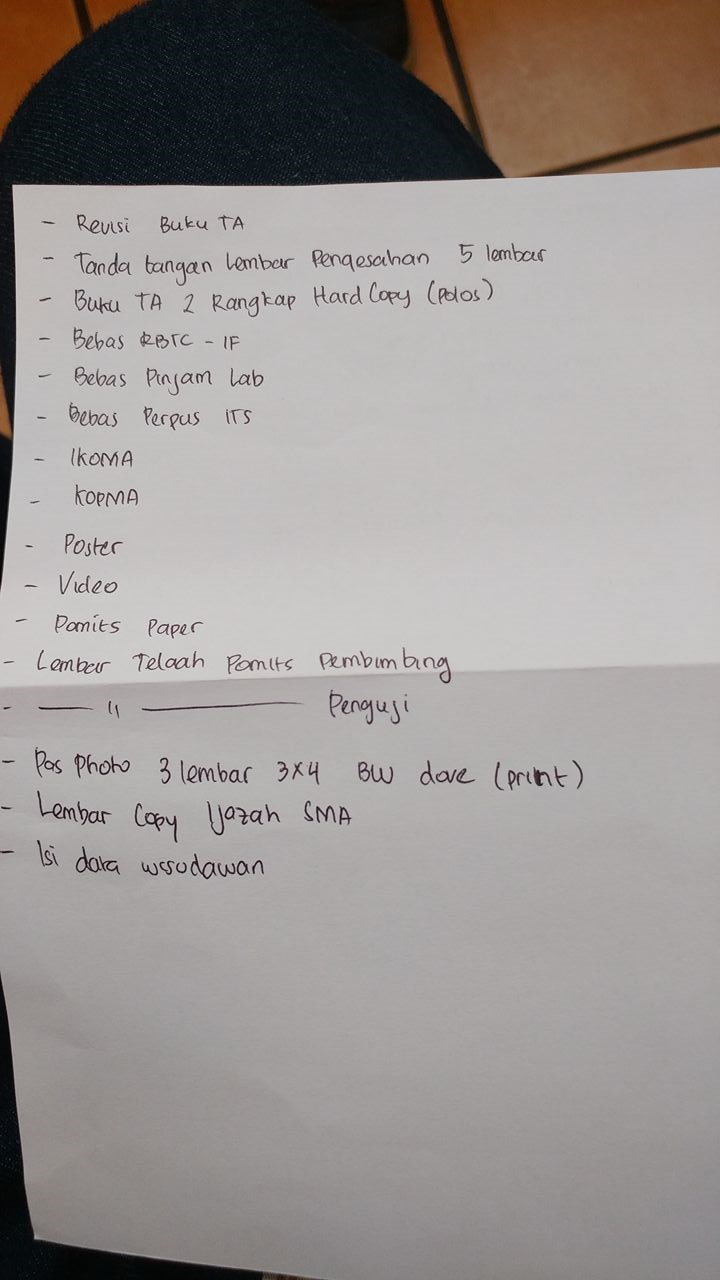 - Revisi Buku TA
- Tanda tangan lembar Pengesahan 5 lembar
- Buku TA 2 Rangkap Hard Copy (polos)
- Bebas RBTC - IF
- Bebas Pinjam Lab
- Bebas Perpus ITS
- IKOMA
- KOPMA
- Poster
- Video
- Pomits Paper
- Lembar Telaah Pomits Pembimbing
- — 〃 — Penguji
- Pas Photo 3 lembar 3x4 BW dove (print)
- Lembar Copy Ijazah SMA
- Isi data wisudawan